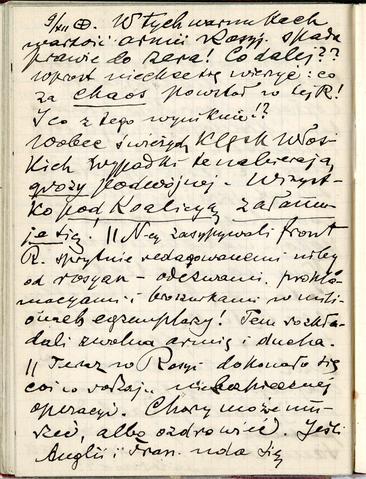 9/XII. W tych warunkach
wartość armii Rosyj. spada
prawie do zera! Co dalej??
Wprost nie chce się wierzyć: co
za chaos powstał w tej R!
I co z tego wyniknie!?
Wobec świeżych klęsk Włos-
kich wypadki te nabierają
grozy podwójnej. Wszyst-
ko pod Koalicyą załamu-
je się. || N-cy zasypywali front
R. sprytnie redagowanemi niby
od rosyan - odezwami, prokla-
macyami i broszurkami w mili-
onach egzemplarzy! Tem rozkła-
dali zwolna armię i ducha.
|| Teraz w Rosyi dokonało się
coś w rodzaju niebezpiecznej
operacyi. Chory może um-
rzeć, albo ozdrowieć. Jeśli
Anglii i Fran. uda się